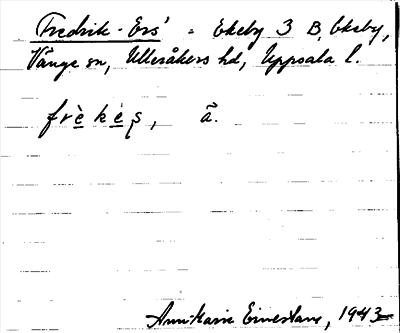 Fredrik-Ers' = Ekeby 3 B, Ekeby,
Vänge sn, Ulleråkers hd, Uppsala l.
frèkès, ã.
AnnMarie , 1943